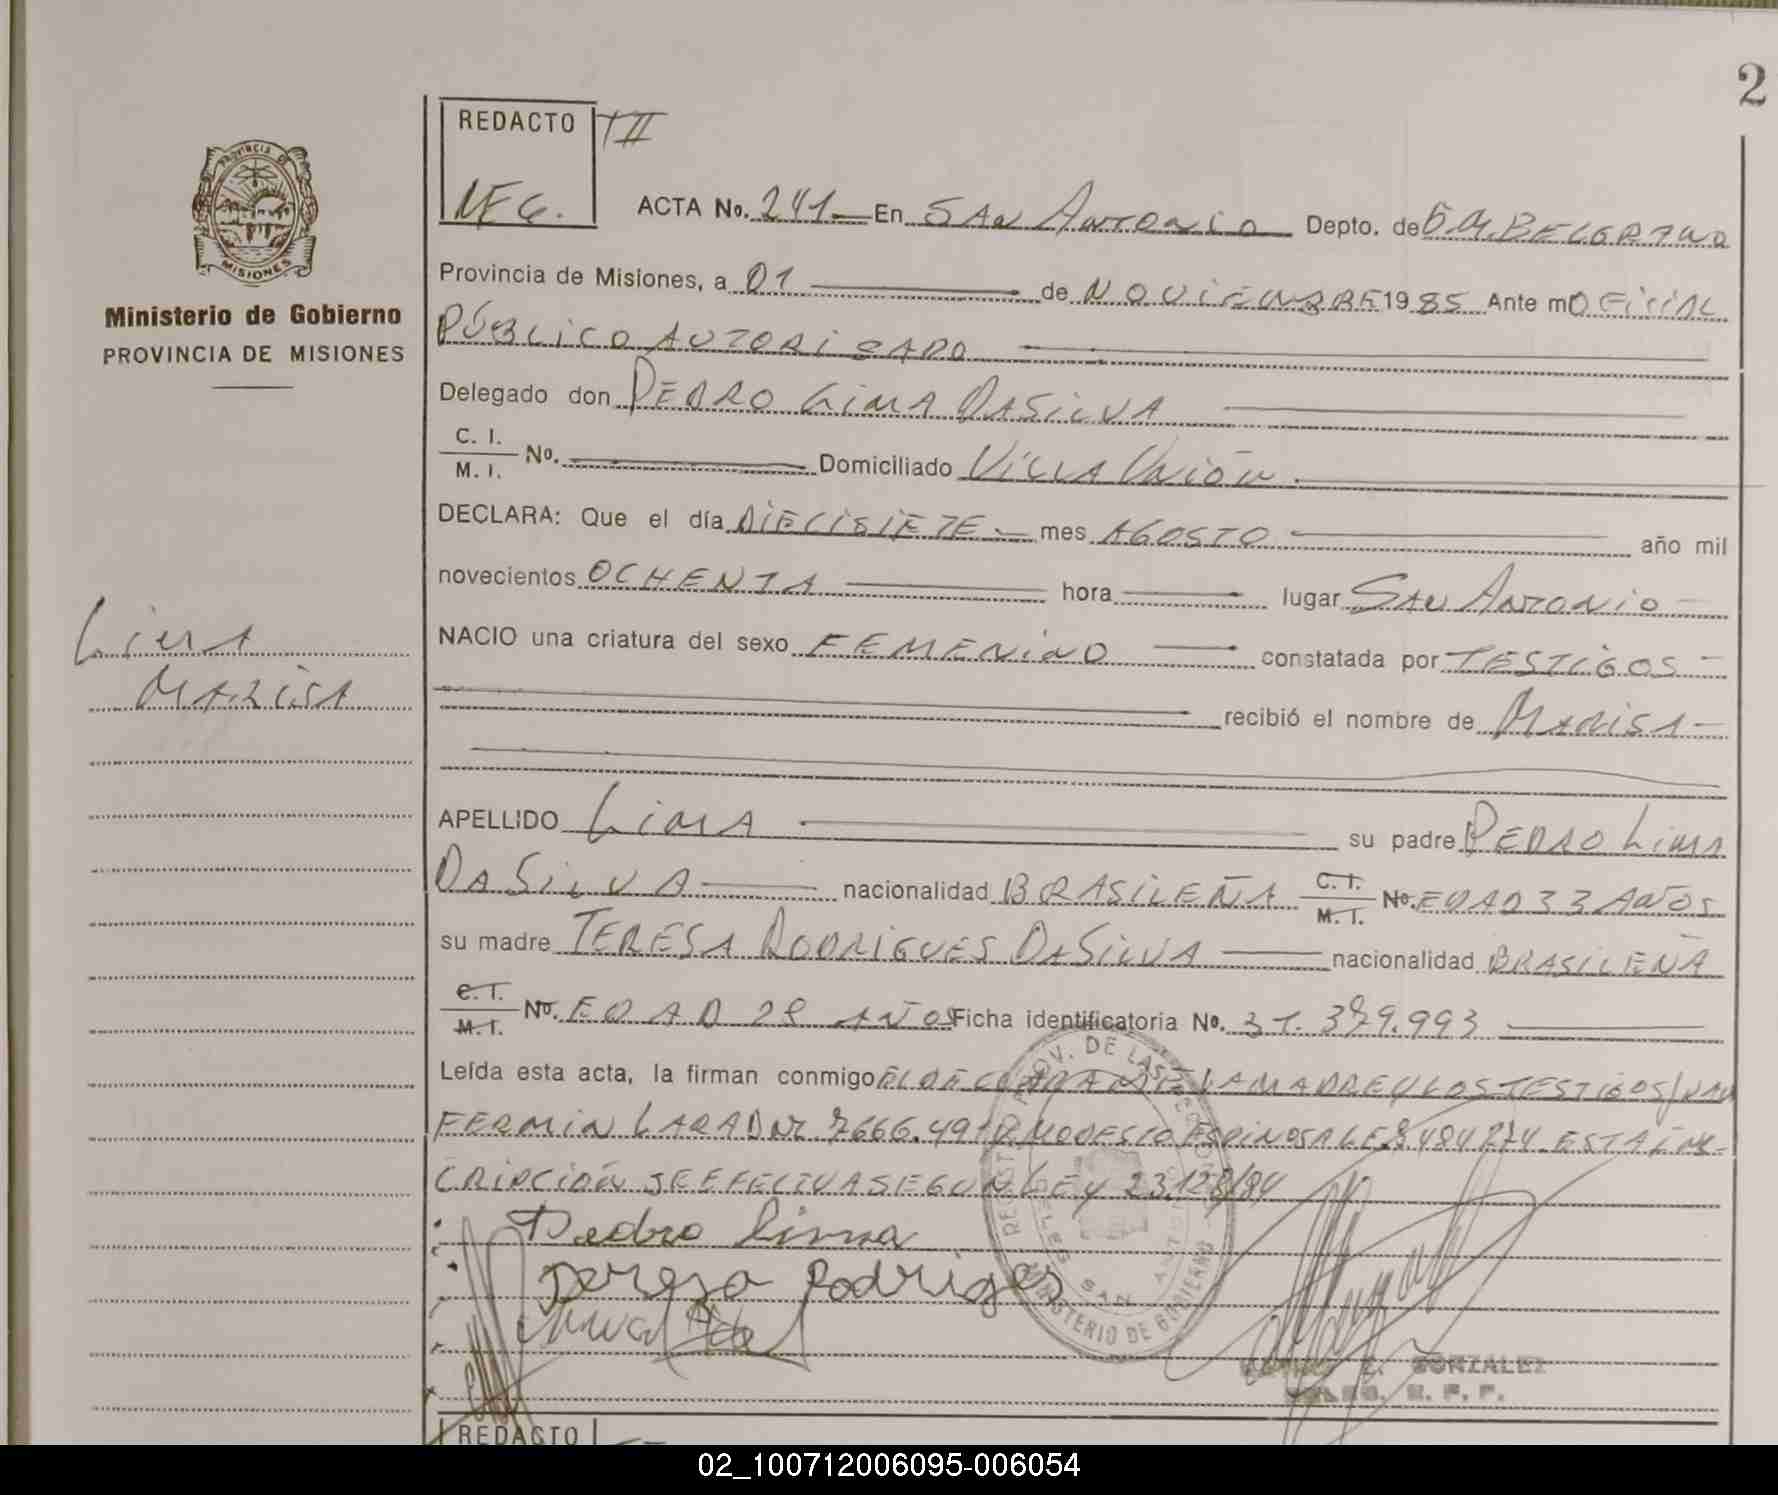 2
REDACTO TII
NEG.
ACTA No. 241 En SAN ANTONIO Depto. de G.M.BELGRANO
Provincia de Misiones, a 01 de NOVIEMBRE 1985 Ante mí OFICIAL
PÚBLICO AUTORIZADO
Delegado don PEDRO LIMA DASILVA
C. I.
M. I.
No. Domiciliado VILLA UNIÓN.
DECLARA: Que el día DIECISIETE mes AGOSTO año mil
novecientos OCHENTA hora lugar SAN ANTONIO
NACIO una criatura del sexo FEMENINO constatada por TESTIGOS
recibió el nombre de MARISA
APELLIDO LIMA su padre PEDRO LIMA
DASILVA nacionalidad BRASILEÑA C. I. M. I. No. EDAD 33 AÑOS
su madre TERESA RODRIGUES DASILVA nacionalidad BRASILEÑA
C. I. M. I. No. EDAD 28 AÑOS Ficha identificatoria No. 31.379.993
Leída esta acta, la firman conmigo EL DECLARANTE LA MADRE Y LOS TESTIGOS/
FERMIN LARA DNI 7666.491 MODESTO ESPINOSA LE 8.484.274. ESTA INS-
CRIPCIÓN SE EFECTUA SEGUN LEY 23.128/84
Pedro Lima
Teresa Rodrigues
GONZALEZ
PROVINCIA DE MISIONES
Ministerio de Gobierno
PROVINCIA DE MISIONES
LIMA
MARISA
MINISTERIO DE GOBIERNO
SAN ANTONIO
REDACTO
02_100712006095-006054